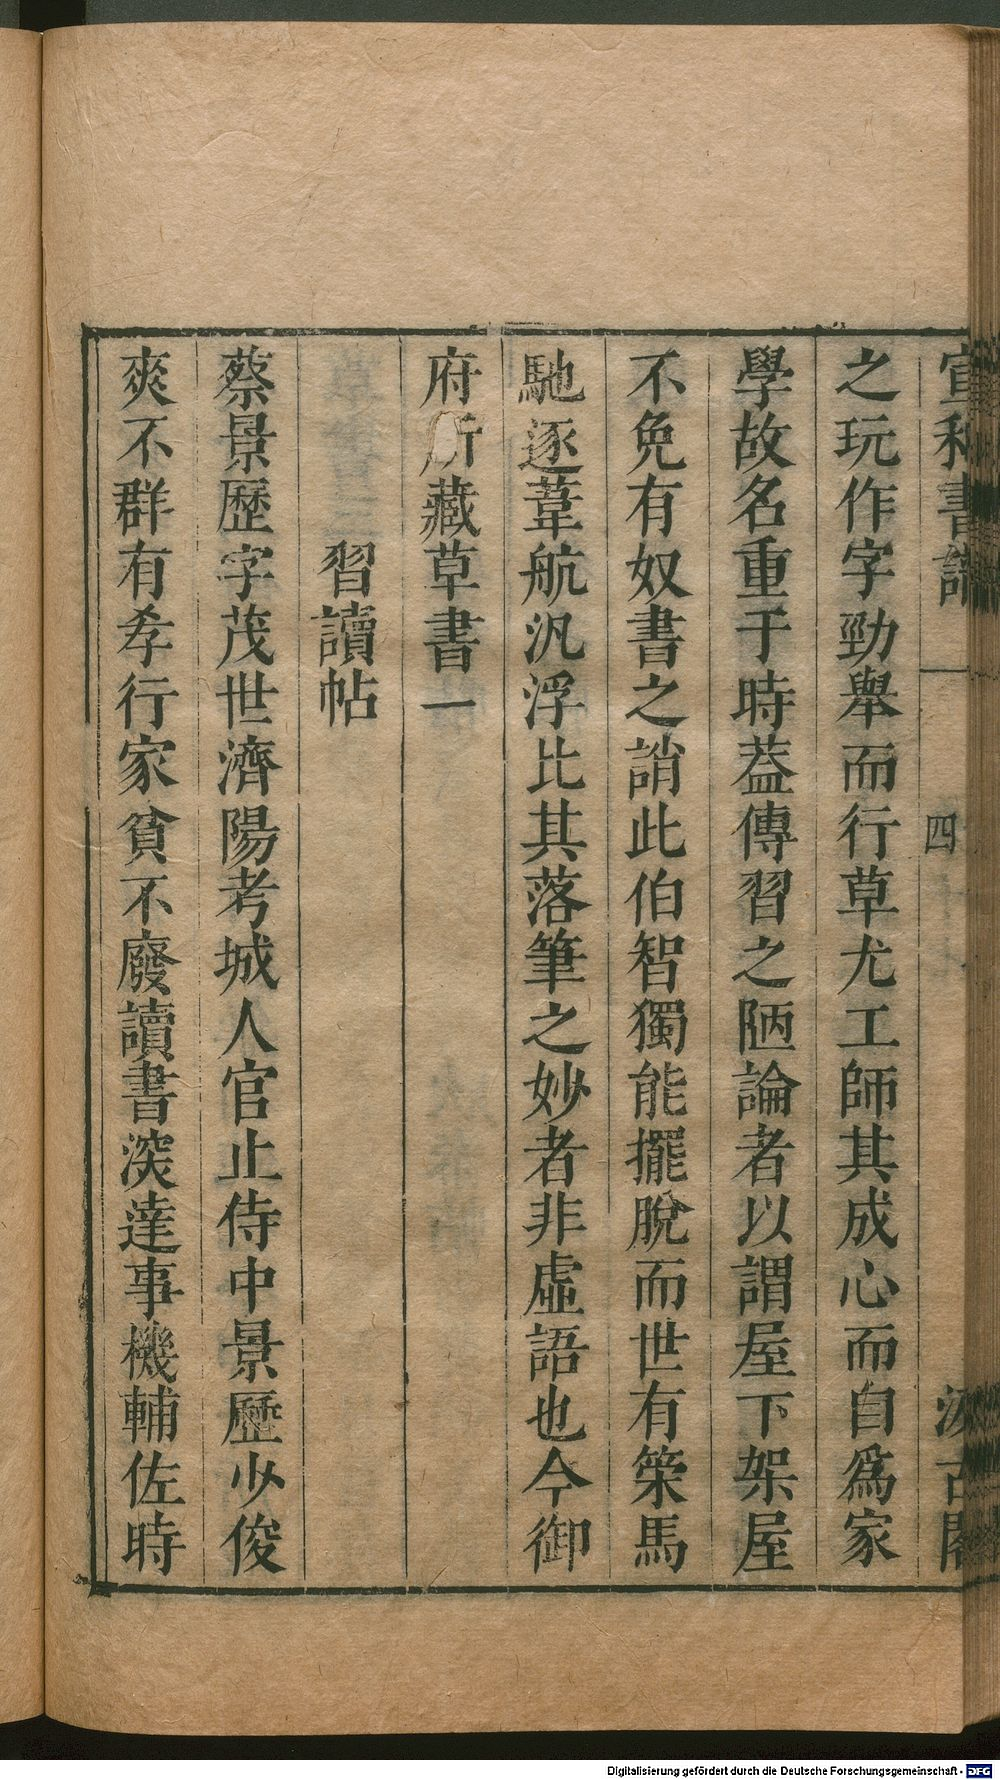 宣和書譜 四 汲古閣
之玩作字勁舉而行草尤工師其成心而自爲家
學故名重于時葢傳習之陋論者以謂屋下架屋
不免有奴書之誚此伯智獨能擺脫而世有策馬
馳逐葦航汎浮比其落筆之妙者非虛語也今御
府所藏草書一
習讀帖
蔡景歷字茂世濟陽考城人官止侍中景歷少俊
爽不群有孝行家貧不廢讀書深達事機輔佐時
Digitalisierung gefördert durch die Deutsche Forschungsgemeinschaft - DFG